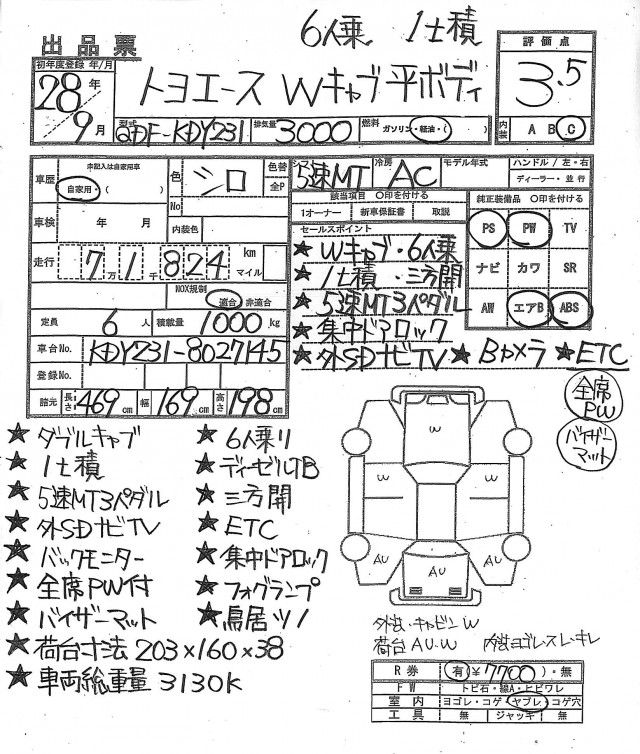 6人乗 1t積
出品票
評価点
初年度登録 年/月
トヨエース Wキャブ平ボディ
3.5
28年
9月
型式 QDF-KDY231
排気量 3000
燃料 ガソリン・軽油・( )
内装 A B C
車歴
未記入は自家用車
自家用・( )
色
シロ
色替
全P
No
5速MT
冷房 AC
モデル年式
ハンドル/左・右
ディーラー・並行
該当項目 〇印を付ける
1オーナー 新車保証書 取説
純正装備品 〇印を付ける
PS PW TV
ナビ カワ SR
AW エアB ABS
車検 年 月
内装色
走行 7万1千824 km マイル
NOX規制
適合・非適合
定員 6人 積載量 1000kg
車台No. KDY231-8027145
登録No.
諸元 長さ 469cm 幅 169cm 高さ 198cm
セールスポイント
★Wキャブ・6人乗
★1t積・三方開
★5速MT3ペダル
★集中ドアロック
★外SDナビTV ★Bカメラ ★ETC
全席PW
バイザーマット
★ダブルキャブ ★6人乗り
★1t積 ★ディーゼルTB
★5速MT3ペダル ★三方開
★外SDナビTV ★ETC
★バックモニター ★集中ドアロック
★全席PW付 ★フォグランプ
★バイザーマット ★鳥居ツノ
★荷台寸法 203×160×38
★車両総重量 3130K
W
W W
AU AU
AU
外装・キャビンW
荷台 AU・W 内装ヨゴレスレ・キレ
R券 有(¥7700)・無
FW トビ石・線A・ヒビワレ
室内 ヨゴレ・コゲ・ヤブレ・コゲ穴
工具 無 ジャッキ 無